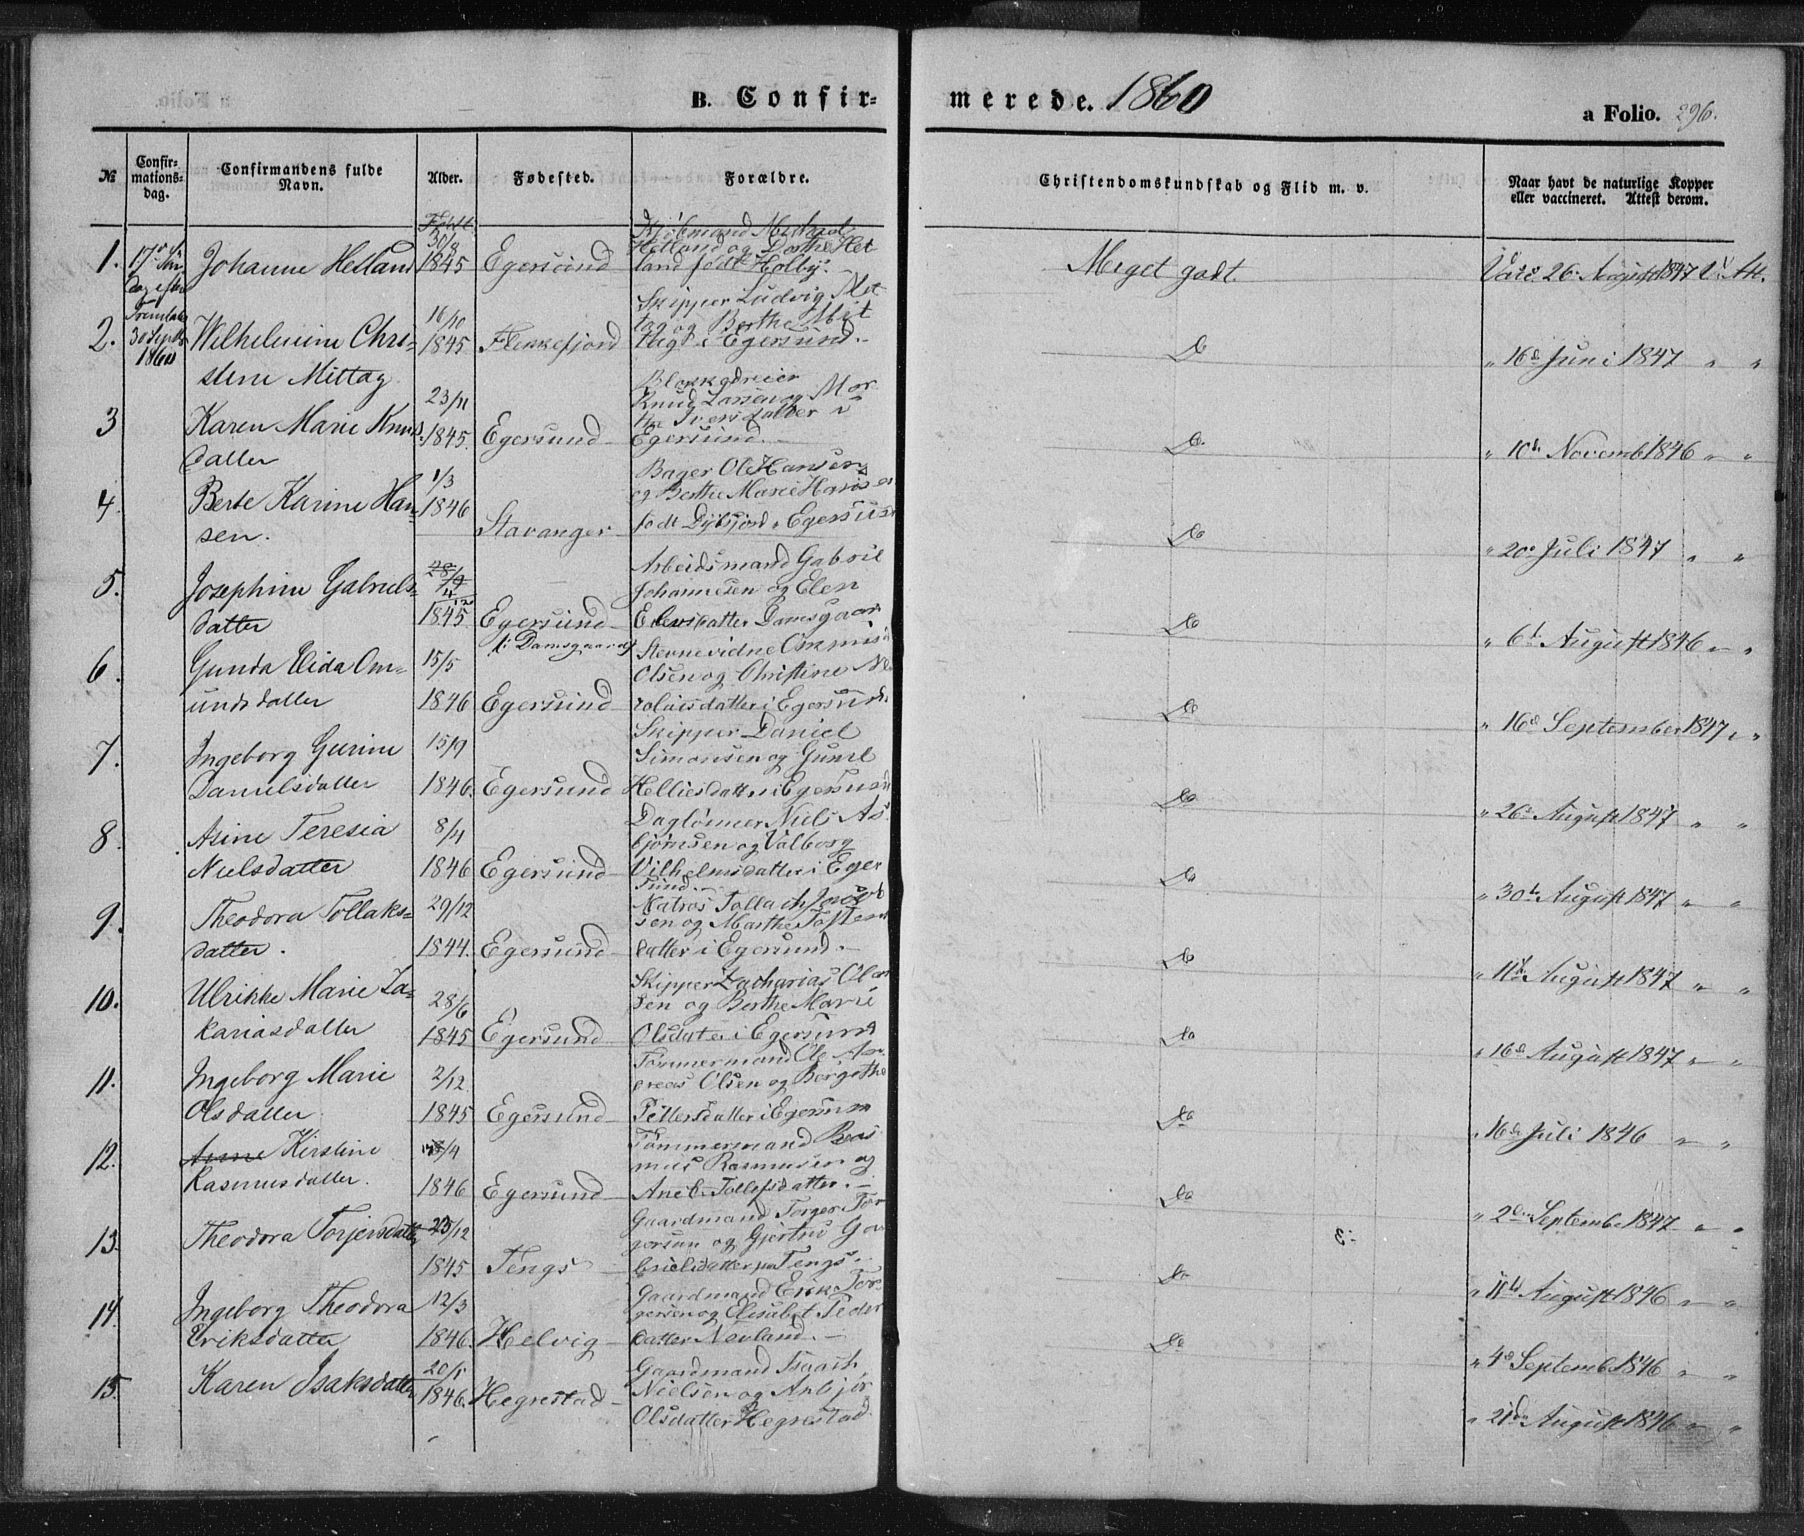 B. Confir-
merede. 1860
a Folio. 296.
№
Confir-
mations-
dag.
Confirmandens fulde
Navn.
Alder.
Fødested.
Forældre.
Christendomskundskab og Flid m. v.
Naar havt de naturlige Kopper
eller vaccineret. Attest derom.
Født
1. 17de Søn
dag efter
Trinitatis
30 Septbr
1860
Johanne Hetland
30/8
1845
Egersund
Kjøbmand Michael
Hetland og Dorthe Het
land født Holby.
Meget godt.
Vacc. 26 August 1847
2.
Wilhelmine Chri-
stine Mittag
16/10
1845
Flekkefjord
Skipper Ludvig Mit
tag og Berthe Mit
tag i Egersund.
Do
" 16d Juni 1847 " "
3
Karen Marie Knuds
datter
23/11
1845.
Egersund
Blokkedreier
Knud Larsen og Mar
the Iversdatter i
Egersund.
Do
" 10de Novemb 1846 " "
4.
Berte Karine Han-
sen.
1/3
1846
Stavanger
Bager Ole Hansen
og Berthe Marie Hansen
født Dybfjord, Egersund
Do
" 20de Juli 1847 " "
5.
Josephine Gabriels-
datter
28/9
4/12
1845
Egersund
(: Damsgaard)
Arbeidsmand Gabriel
Johannesen og Elen
Elevsdatter Damsgaard
Do
" 6te August 1846 " "
6.
Gunda Elida Om-
undsdatter
15/5
1846
Egersund
Stevnevidne Ommund
Olsen og Christine
i Egersund
Do
" 16d September 1847 " "
7.
Ingeborg Gurine
Danielsdatter
15/9
1846.
Egersund
Skipper Daniel
Simonsen og Gunil
Helliesdatter i Egersund
Do
" 26de August 1847 " "
8.
Asine Teresia
Nielsdatter
8/4
1846
Egersund
Daglønner Niels As
bjørnsen og Valborg
Vilhelmsdatter i Eger
sund.
Do
" 30te August 1847 " "
9.
Theodora Tollaks-
datter.
29/12
1844.
Egersund
Matros Tollach
sen og Marthe Tosten
datter i Egersund.
Do
" 11te August 1847 " "
10.
Ulrikke Marie Za-
kariasdatter
28/6
1845
Egersund
Skipper Zacharias Ol
sen og Berthe Marie
Olsdatter i Egersund
Do
" 16d August 1847 " "
11.
Ingeborg Marie
Olsdatter
2/12
1845
Egersund
Tømmermand Ole An
dreas Olsen og Bergithe
Pettersdatter i Egersun
Do
" 16de Juli 1846 " "
12.
Anne Kirstine
Rasmusdatter.
/4
1846
Egersund
Tømmermand Ras
mus Rasmussen og
Ane E. Tollefsdatter.
Do
" 2den Septembe 1847 " "
13.
Theodora Torjersdatter
23/12
1845
Tengs
Gaardmand Torger Tor
gersen og Gjertrud Ga
brielsdatter paa Tengs.
Do
" 11te August 1846 " "
14.
Ingeborg Theodora
Eriksdatter
12/3
1846.
Helvig
Gaardmand Erik Tor
gersen og Elisabet Peder
datter Nevland.
Do
" 4d Septemb 1846 " "
15.
Karen Isaksdatter
20/1
1846.
Hegrestad
Gaardmand Isaach
Nielsen og Anbjør
Olsdatter Hegrestad.
" 21de August 1846 " "